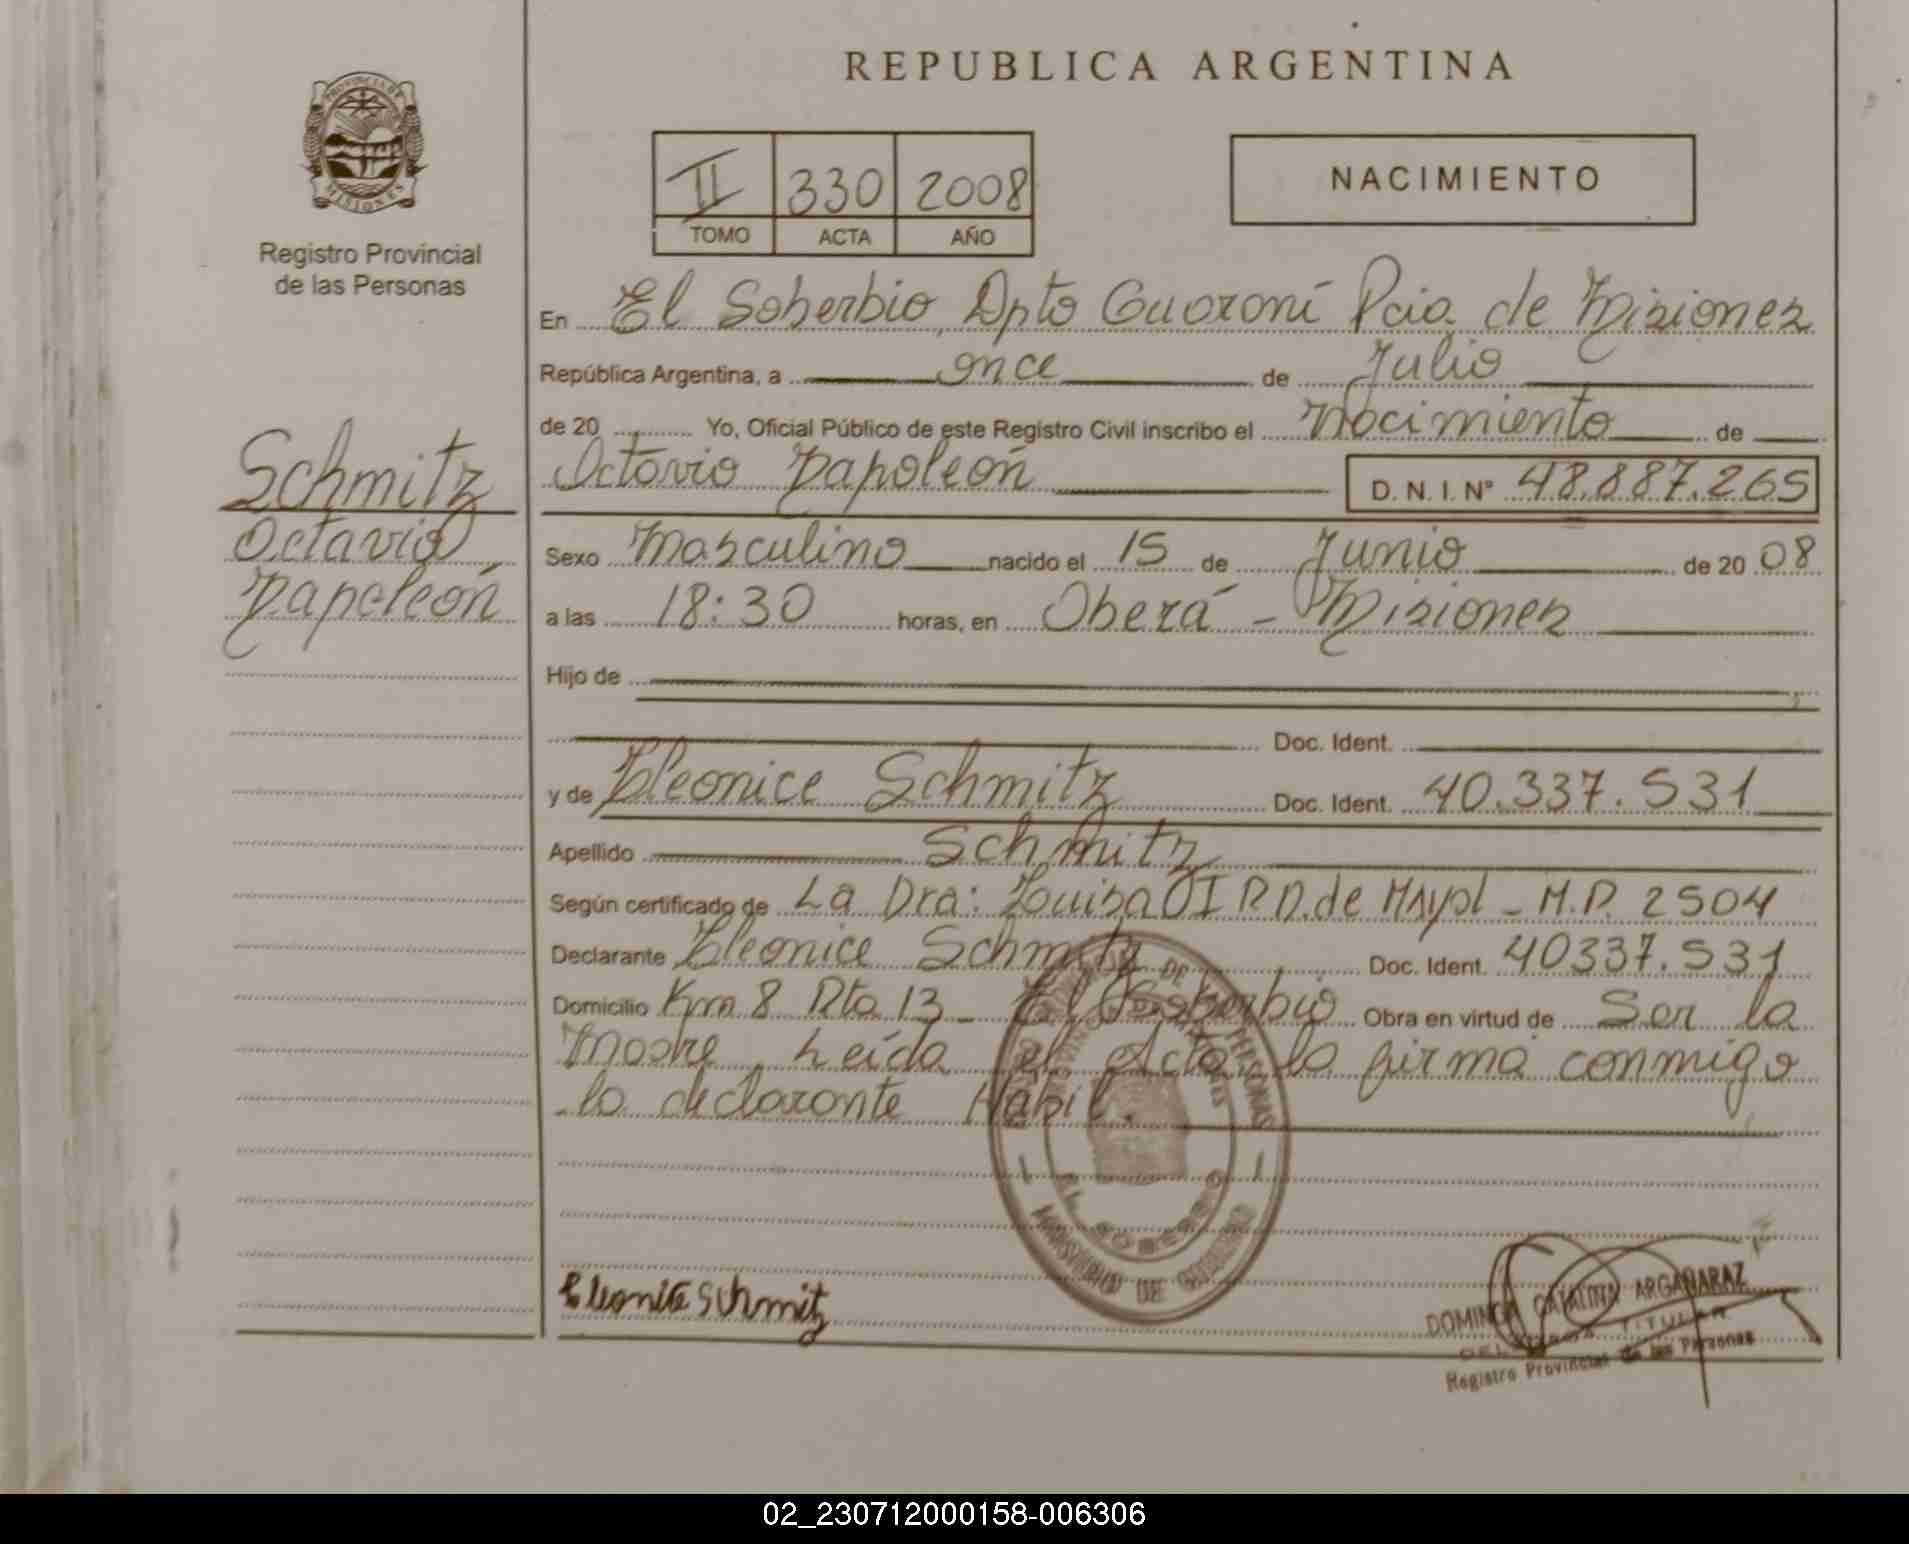 REPUBLICA ARGENTINA
PROVINCIA DE
MISIONES
Registro Provincial
de las Personas
II 330 2008
TOMO ACTA AÑO
NACIMIENTO
En El Soberbio, Dpto Guaraní Pcia de Misiones
República Argentina, a once de Julio
de 20 Yo, Oficial Público de este Registro Civil inscribo el Nacimiento de
Octavio Napoleón D. N. I. Nº 48.887.265
Schmitz
Octavio
Napoleón
Sexo Masculino nacido el 15 de Junio de 20 08
a las 18:30 horas, en Oberá - Misiones
Hijo de
Doc. Ident.
y de Cleonice Schmitz Doc. Ident. 40.337.531
Apellido Schmitz
Según certificado de La Dra: Louisa de Mayol - M.P. 2504
Declarante Cleonice Schmitz Doc. Ident. 40337.531
Domicilio Km 8 Rta 13 - El Soberbio Obra en virtud de Ser la
Madre, Leída el Acta, la firma conmigo
la declarante Hábil.
EL SOBERBIO
MINISTERIO DE GOBIERNO
Cleonice Schmitz
DOMINGA CATALINA ARGAÑARAZ
DELEGADA TITULAR
Registro Provincial de las Personas
02_230712000158-006306